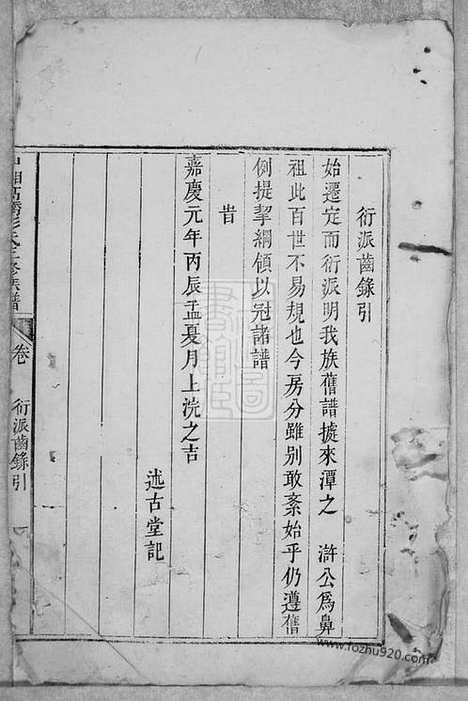 衍派齒錄引
始遷定而衍派明我族舊譜據來潭之　滸公爲鼻
祖此百世不易規也今房分雖別敢紊始乎仍遵舊
例提挈綱領以冠諸譜
旹
嘉慶元年丙辰孟夏月上浣之吉
述古堂記
氏
族譜
卷
衍派齒錄引
www.fozhu920.com